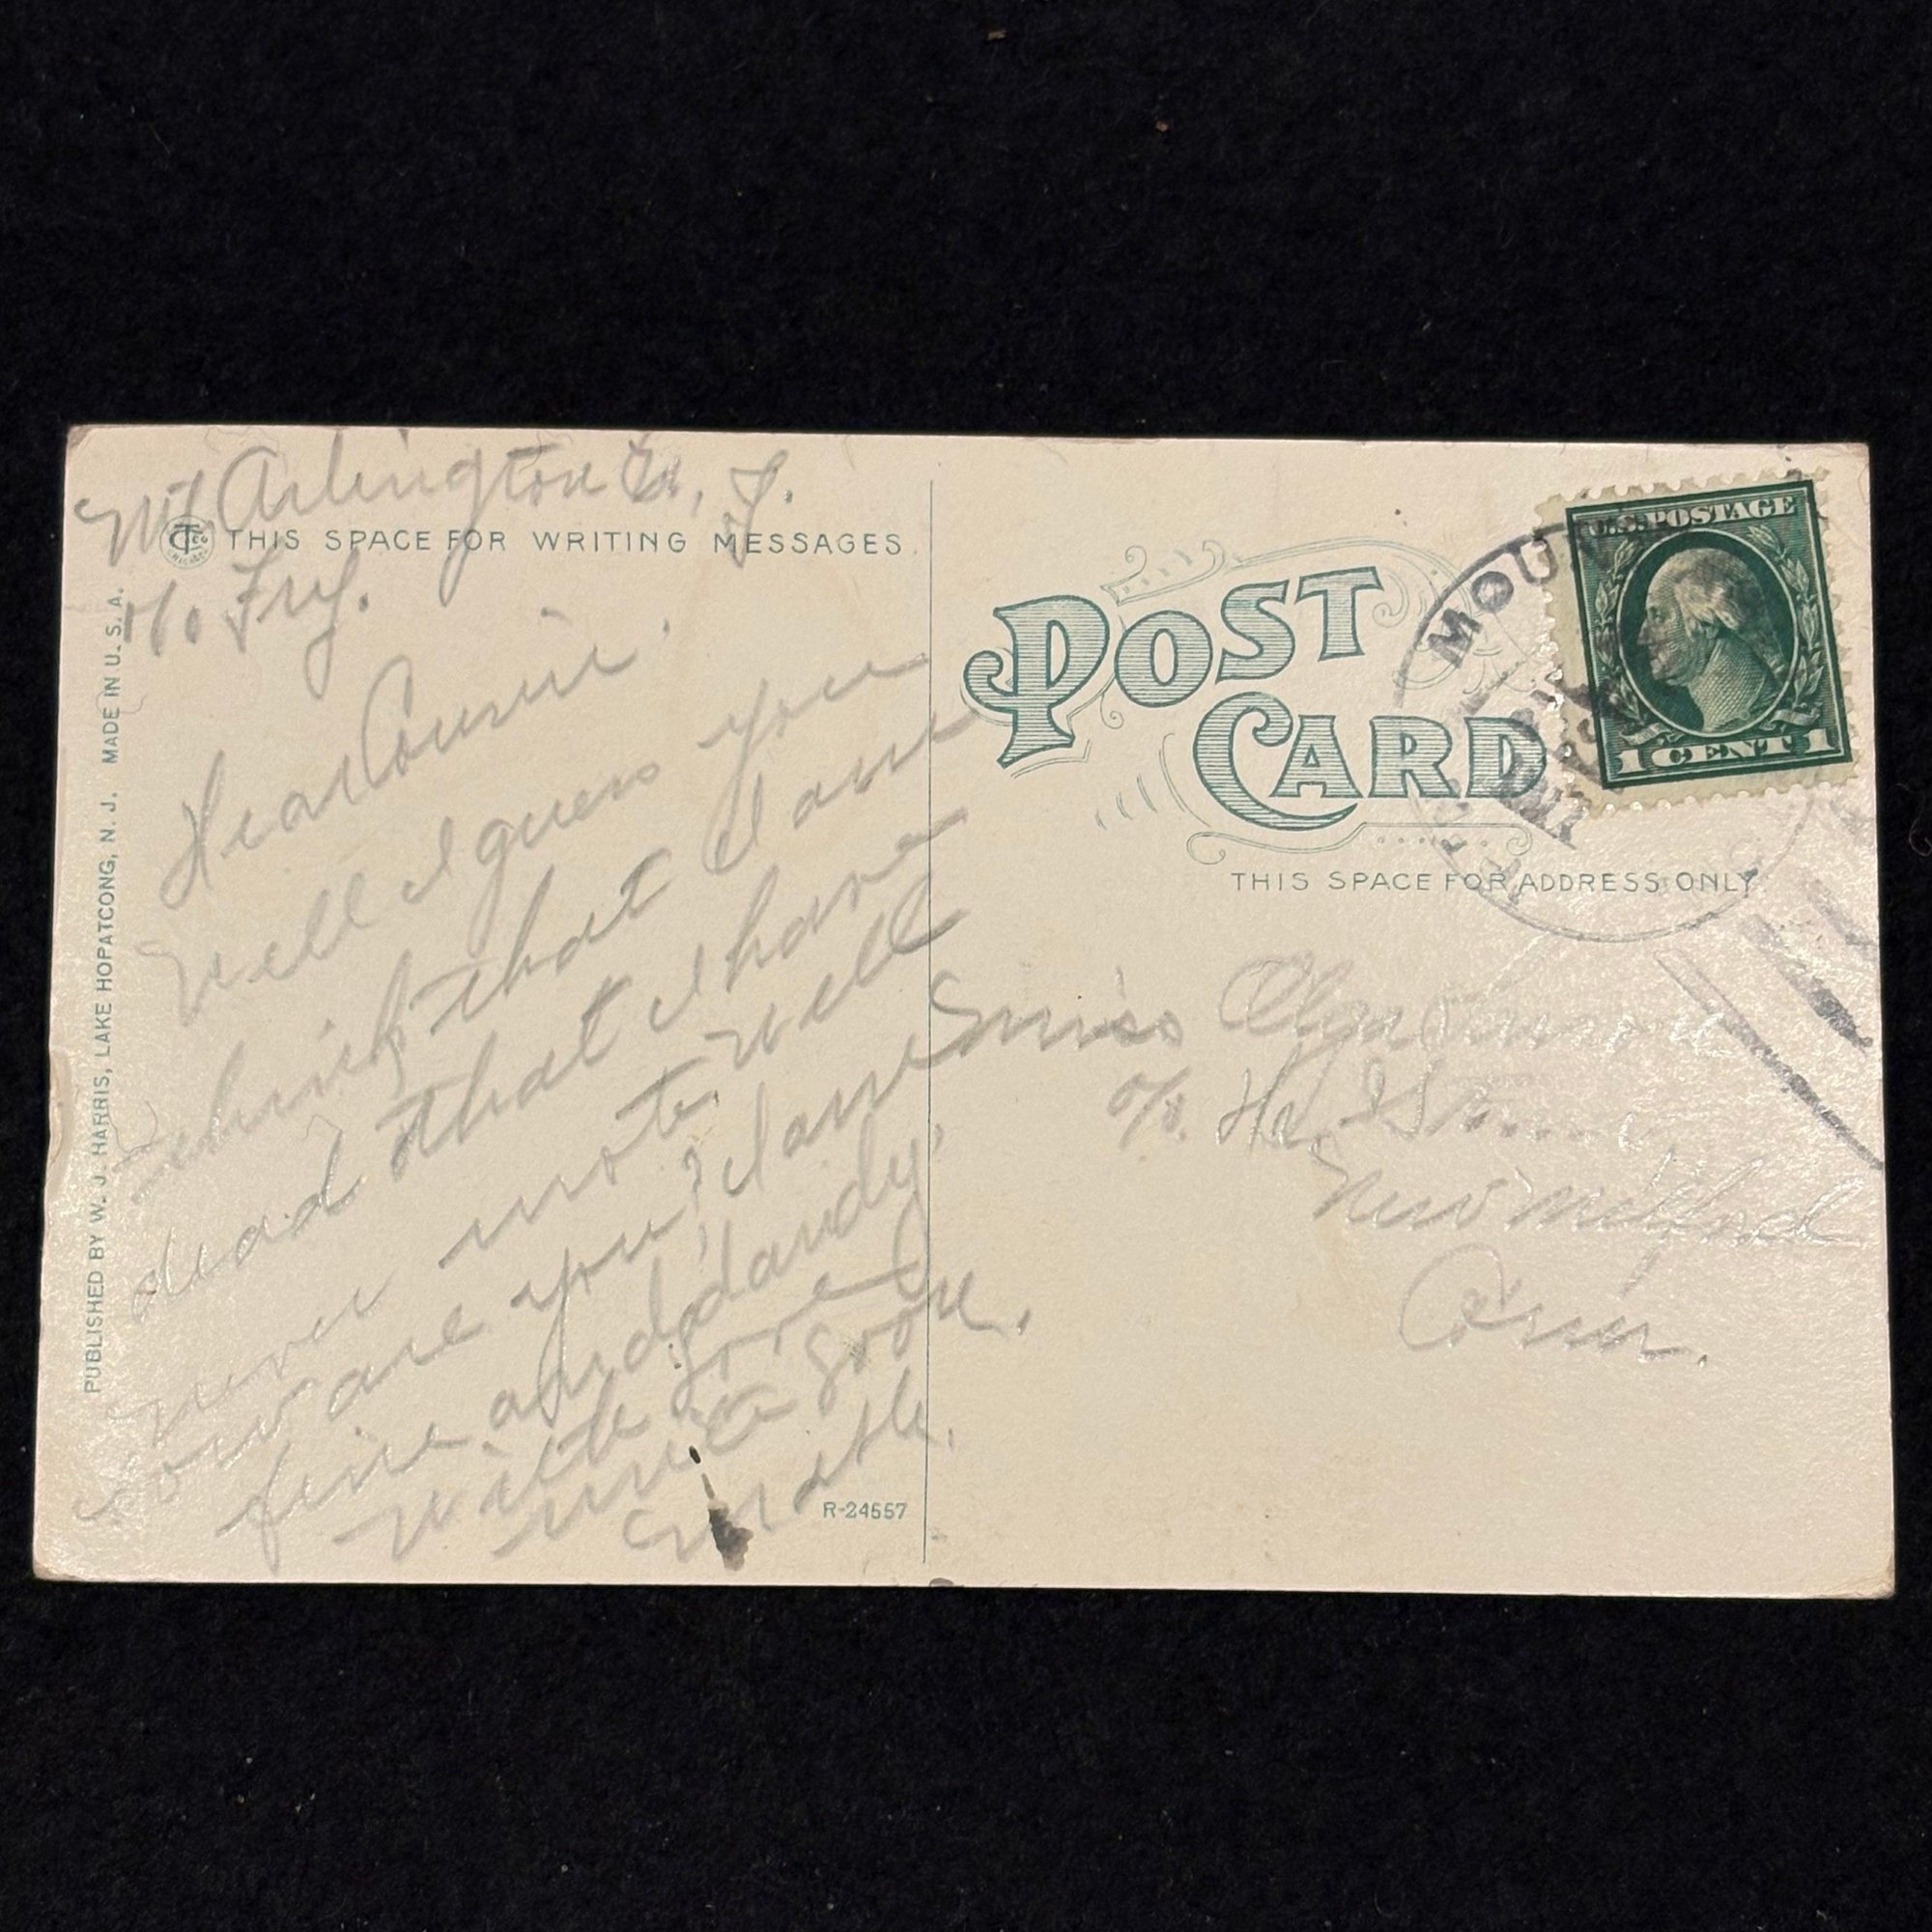 Mt. Arlington N. J.
THIS SPACE FOR WRITING MESSAGES.
c/o Fry.
Dear Cousin.
Well I guess you
think that I am
dead that I have
never wrote. Well
how are you? I am
fine and dandy,
Will
me soon.
PUBLISHED BY W. J. HARRIS, LAKE HOPATCONG, N. J. MADE IN U. S. A.
R-24557
POST
CARD
THIS SPACE FOR ADDRESS ONLY.
U.S. POSTAGE
1 CENT 1
MOU
Miss Olga
c/o
New Milford
Conn.